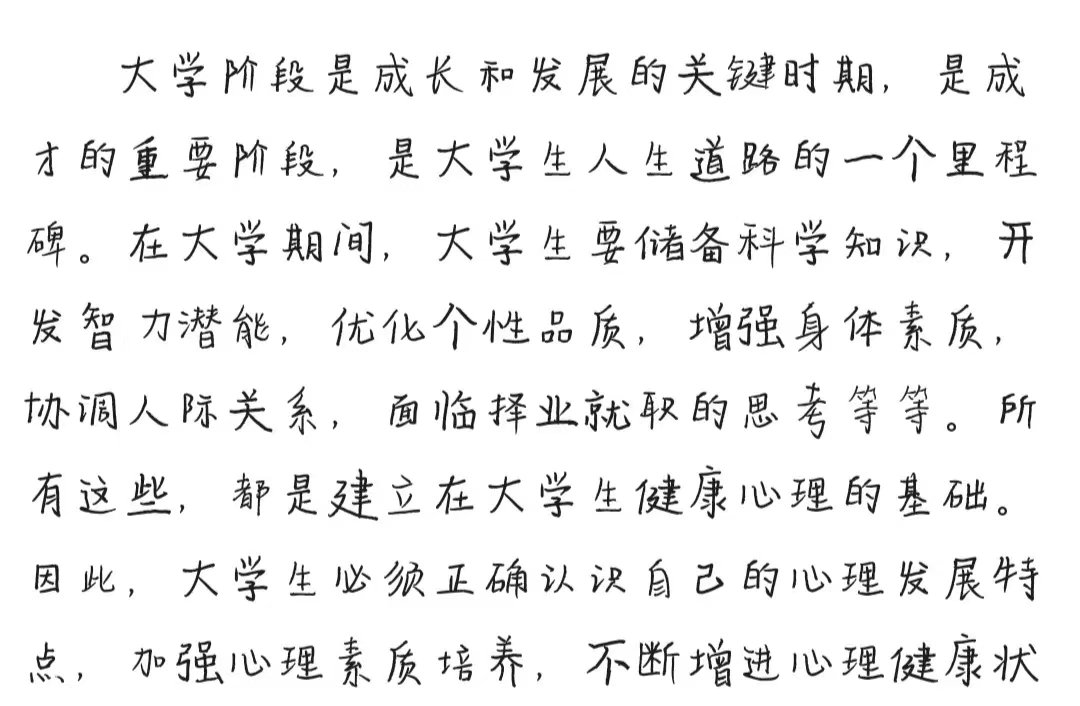 大学阶段是成长和发展的关键时期，是成
才的重要阶段，是大学生人生道路的一个里程
碑。在大学期间，大学生要储备科学知识，开
发智力潜能，优化个性品质，增强身体素质，
协调人际关系，面临择业就职的思考等等。所
有这些，都是建立在大学生健康心理的基础。
因此，大学生必须正确认识自己的心理发展特
点，加强心理素质培养，不断增进心理健康状